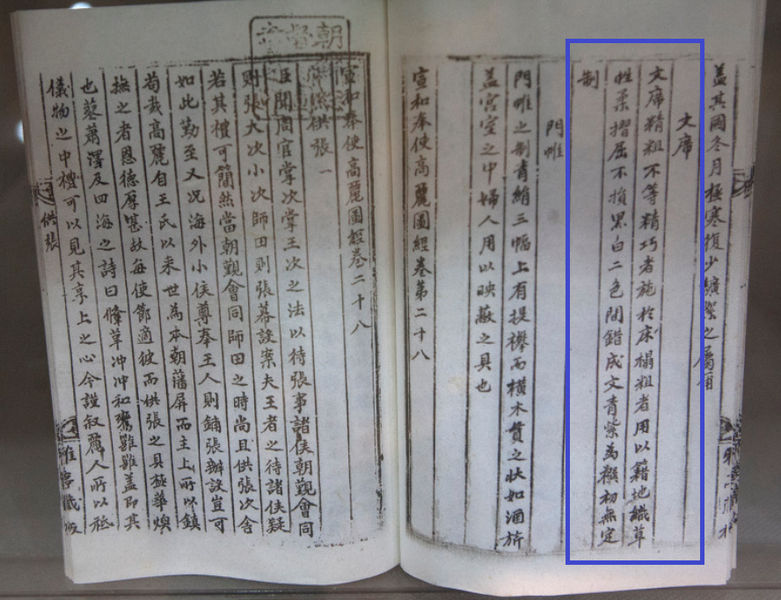 盖其國冬月極寒復少纊絮之屬爾
文席
文席精粗不等精巧者施於床榻粗者用以籍地織草
性柔摺屈不損黑白二色間錯成文青紫為襈初無定
制
門帷
門帷之制青絹三幅上有提襻而橫木貫之狀如酒旂
盖宮室之中婦人用以映蔽之具也
宣和奉使高麗圖經卷第二十八
宣和奉使高麗圖經卷二十八
供張一
臣聞周官掌次掌王次之法以待張事諸侯朝覲會同
則張大次小次師田則張幕設案夫王者之待諸侯疑
若其禮可簡然當朝覲會同師田之時尚且供張次舍
如此勤至又况海外小侯尊奉王人則鋪張辦設豈可
苟哉高麗自王氏以来世為本朝藩屏而主上所以鎮
撫之者恩德厚甚故每使節適彼而供張之具極華煥
也蓼蕭澤及四海之詩曰鞗革冲冲和鸞雝雝盖即其
儀物之中禮可以見其享上之心今謹叙麗人所以祗
供張